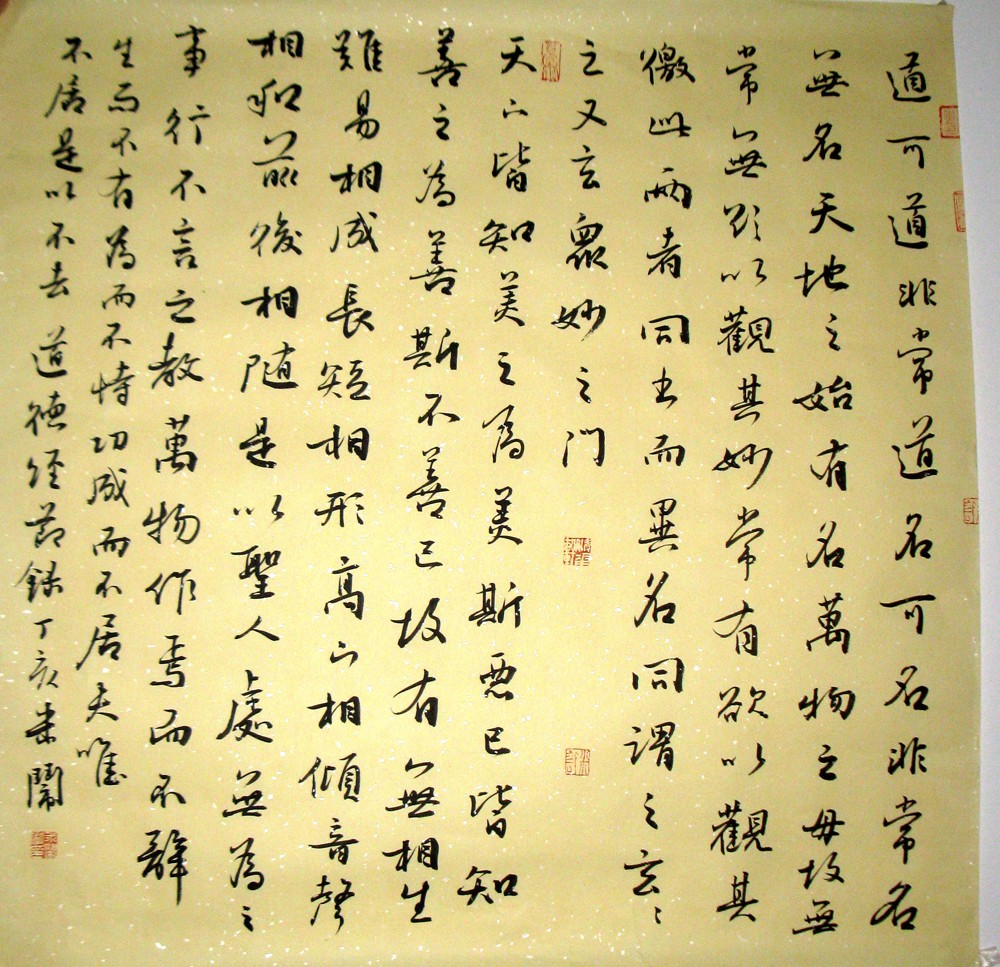 道可道非常道名可名非常名
無名天地之始有名萬物之母故無
常無欲以觀其妙常有欲以觀其
徼此兩者同出而異名同謂之玄〻
之又玄衆妙之門
天下皆知美之為美斯惡已皆知
善之為善斯不善已故有無相生
難易相成長短相形高下相傾音聲
相和前後相随是以聖人處無為之
事行不言之教萬物作焉而不辭
生而不有為而不恃功成而不居夫唯
不居是以不去 道德經節録丁亥朱鬧